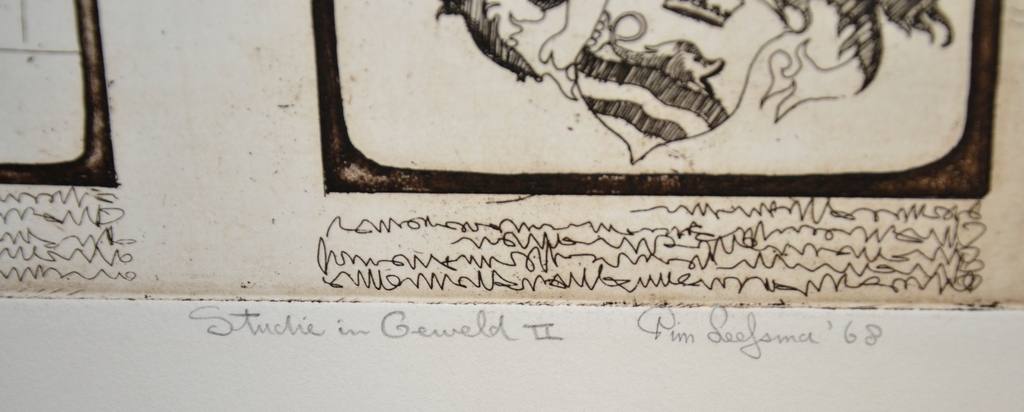 Studie in Geweld II Pim Leefsma '68